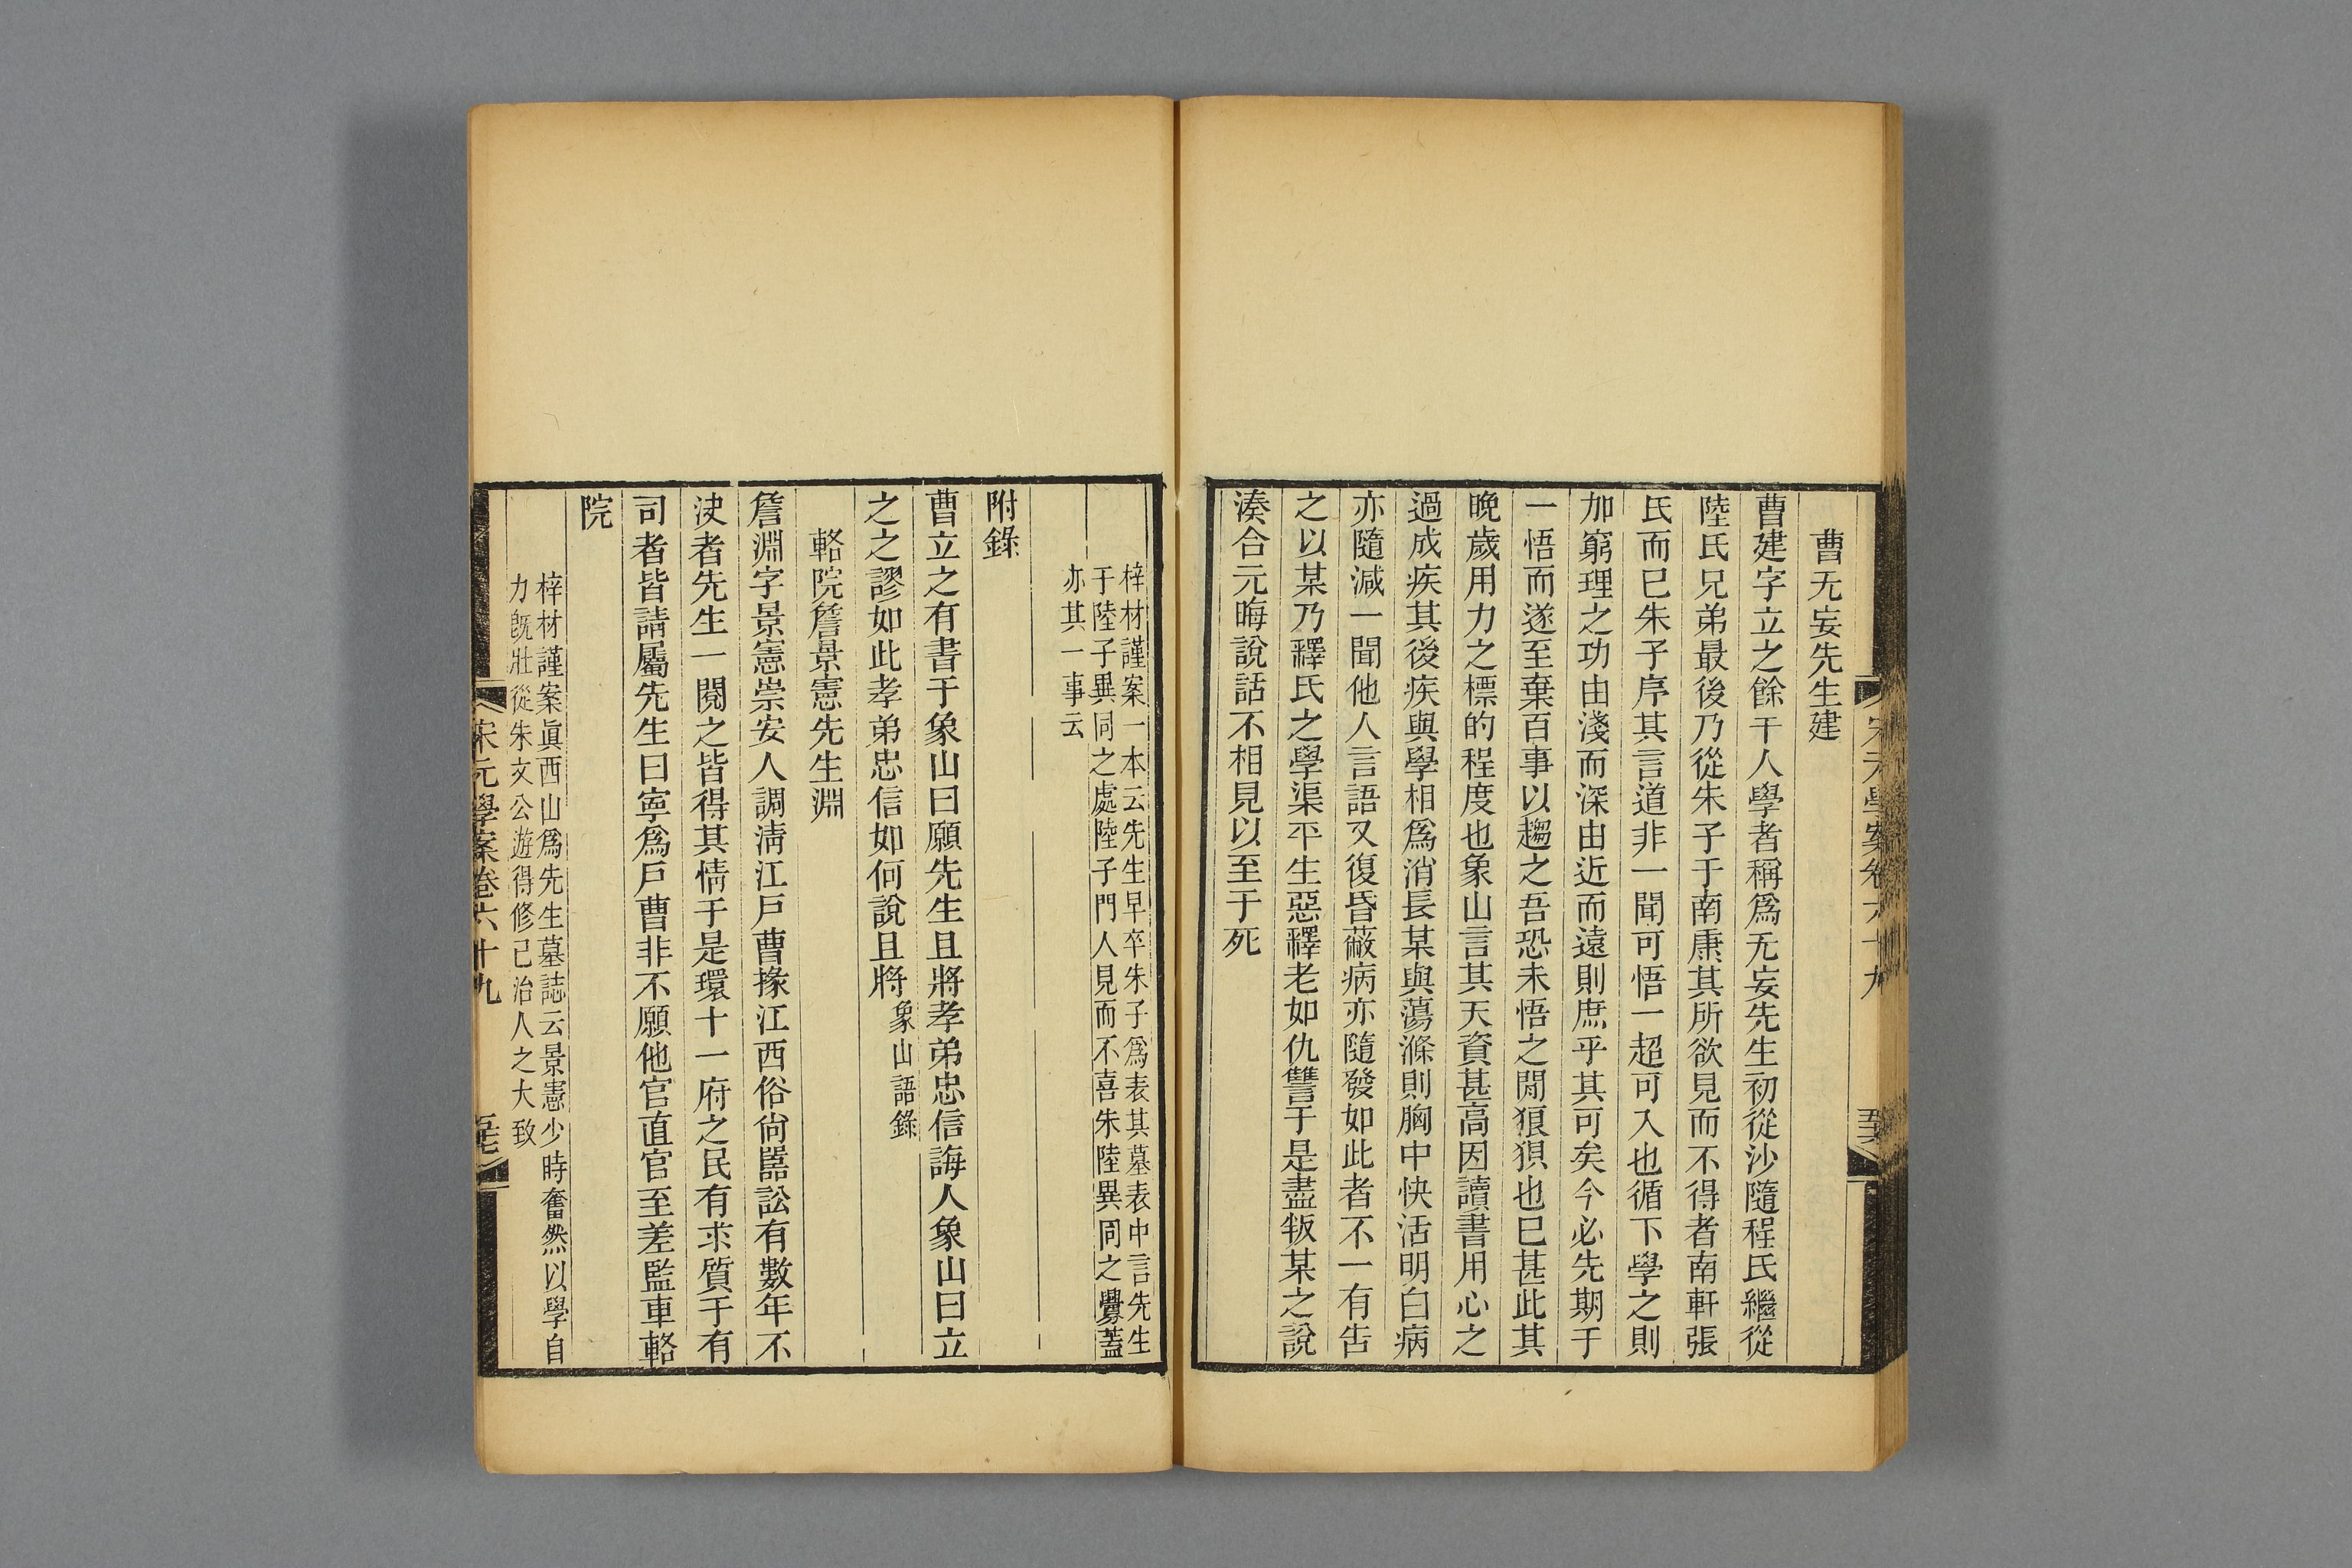 宋元學案卷六十九
曹无妄先生建
曹建字立之餘干人學者稱爲无妄先生初從沙隨程氏繼從
陸氏兄弟最後乃從朱子于南康其所欲見而不得者南軒張
氏而已朱子序其言道非一聞可悟一超可入也循下學之則
加窮理之功由淺而深由近而遠則庶乎其可矣今必先期于
一悟而遂至棄百事以趨之吾恐未悟之閒狼狽也已甚此其
晚歲用力之標的程度也象山言其天資甚高因讀書用心之
過成疾其後疾與學相爲消長某與蕩滌則胸中快活明白病
亦隨減一聞他人言語又復昏蔽病亦隨發如此者不一有告
之以某乃釋氏之學渠平生惡釋老如仇讐于是盡叛某之說
湊合元晦說話不相見以至于死
梓材謹案一本云先生早卒朱子爲表其墓表中言先生
于陸子異同之處陸子門人見而不喜朱陸異同之釁蓋
亦其一事云
附錄
曹立之有書于象山曰願先生且將孝弟忠信誨人象山曰立
之之謬如此孝弟忠信如何說且將象山語錄
輅院詹景憲先生淵
詹淵字景憲崇安人調清江戸曹掾江西俗尙嚚訟有數年不
決者先生一閱之皆得其情于是環十一府之民有求質于有
司者皆請屬先生曰寧爲戸曹非不願他官直官至差監車輅
院
梓材謹案眞西山爲先生墓誌云景憲少時奮然以學自
力旣壯從朱文公遊得修己治人之大致
宋元學案卷六十九